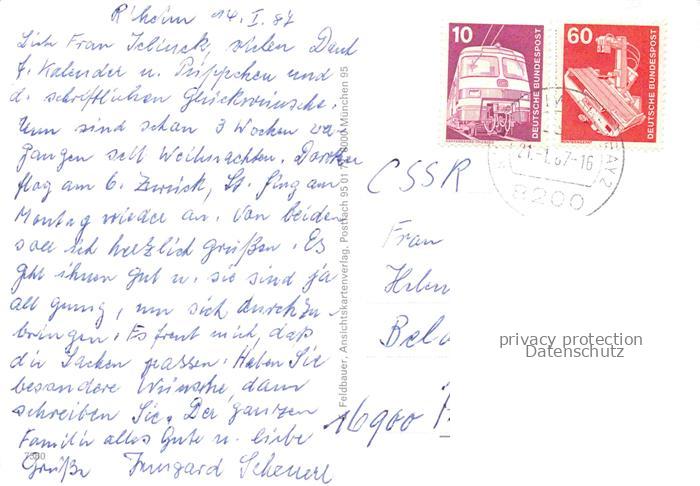 R'heim 14. I. 87
Liebe Frau Jelinek, vielen Dank
f. Kalender u. Püppchen und
d. schriftlichen Glückwünsche.
Nun sind schon 3 Wochen ver-
gangen seit Weihnachten.
flog am 6. zurück, St. fing am
Montag wieder an. Von beiden
soll ich herzlich grüßen. Es
geht ihnen gut u. sie sind ja
alt genug, um sich durchzu-
bringen. Es freut mich, daß
die Sachen passen. Haben Sie
besondere Wünsche, dann
schreiben Sie. Der ganzen
Familie alles Gute u. liebe
Grüße Irmgard Scheuerl
7300
Feldbauer, Ansichtskartenverlag, Postfach 95 01 8000 München 95
10
DEUTSCHE BUNDESPOST
60
DEUTSCHE BUNDESPOST
21.-1.87-16
8200
CSSR
Frau
Helen
Bela
16900
privacy protection
Datenschutz